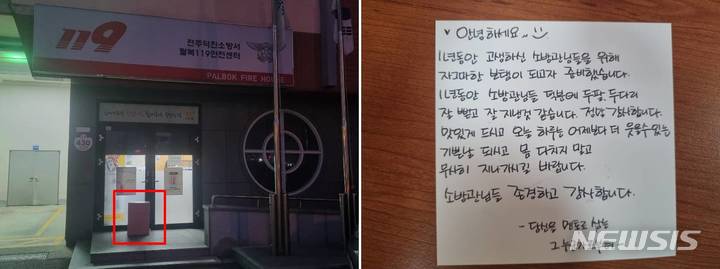 119
전주덕진소방서
팔복119안전센터
PALBOK FIRE HOUSE
119
430
♥ 안녕하세요..
1년동안 고생하신 소방관님들을 위해
자그마한 보탬이 되고자 준비했습니다.
1년동안 소방관님들 덕분에 두팔, 두다리
잘 뻗고 잘 지낸것 같습니다. 정말 감사합니다.
맛있게 드시고 오늘 하루는 어제보다 더 웃을수있는
기쁜날 되시고 몸 다치지 말고
무사히 지나가시길 바랍니다.
소방관님들 존경하고 감사합니다.
- 당신을
그
NEWSIS